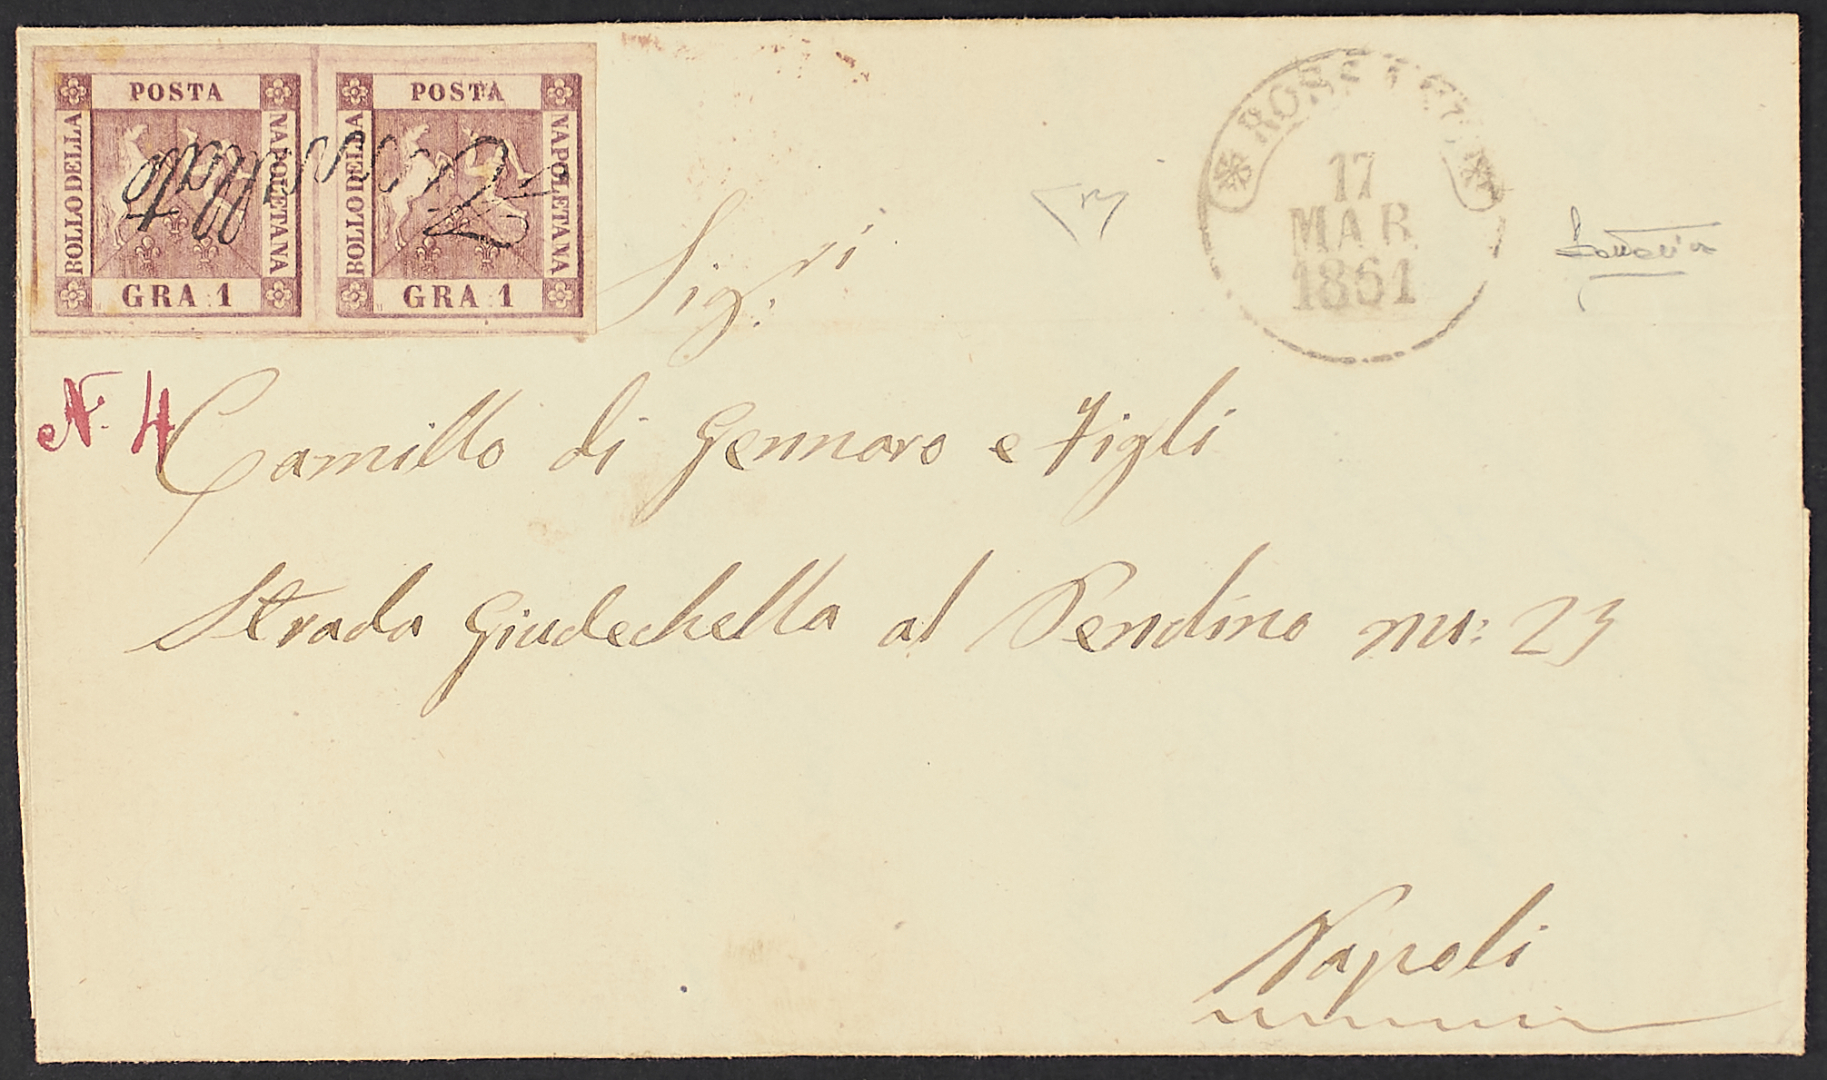 POSTA
ROLLO DELLA
NAPOLETANA
GRA 1
POSTA
ROLLO DELLA
NAPOLETANA
GRA 1
17
MAR
1861
Sig.ri
N. 4
Camillo di Gennaro e Figli
Strada Giudechella al Pendino nu: 23
Napoli